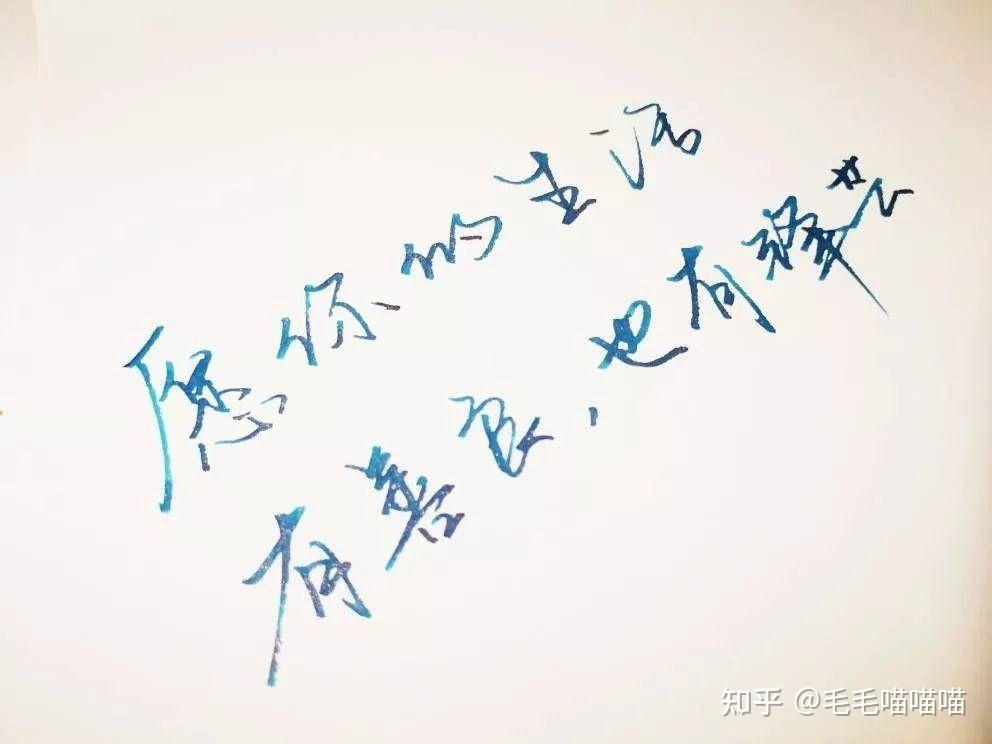 愿你的生活
有善良，也有锋芒
知乎 @毛毛喵喵喵